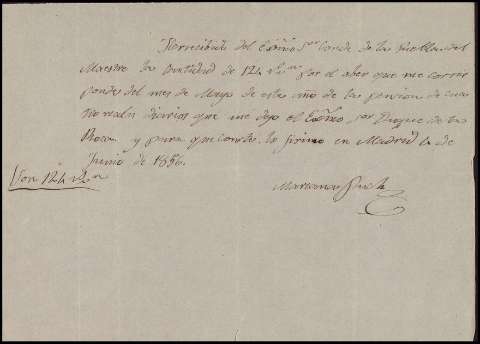 He recibido del Exmo Sor Conde de la Puebla del
Maestre la Cantidad de 124 rs vn por el aber que me corres
ponde del mes de Mayo de este año de la pension de cua
tro reales diarios que me dejo el Exmo Sor Duque de la
Roca y para que conste lo firmo en Madrid de
Junio de
Son 124 rs vn
Mariana